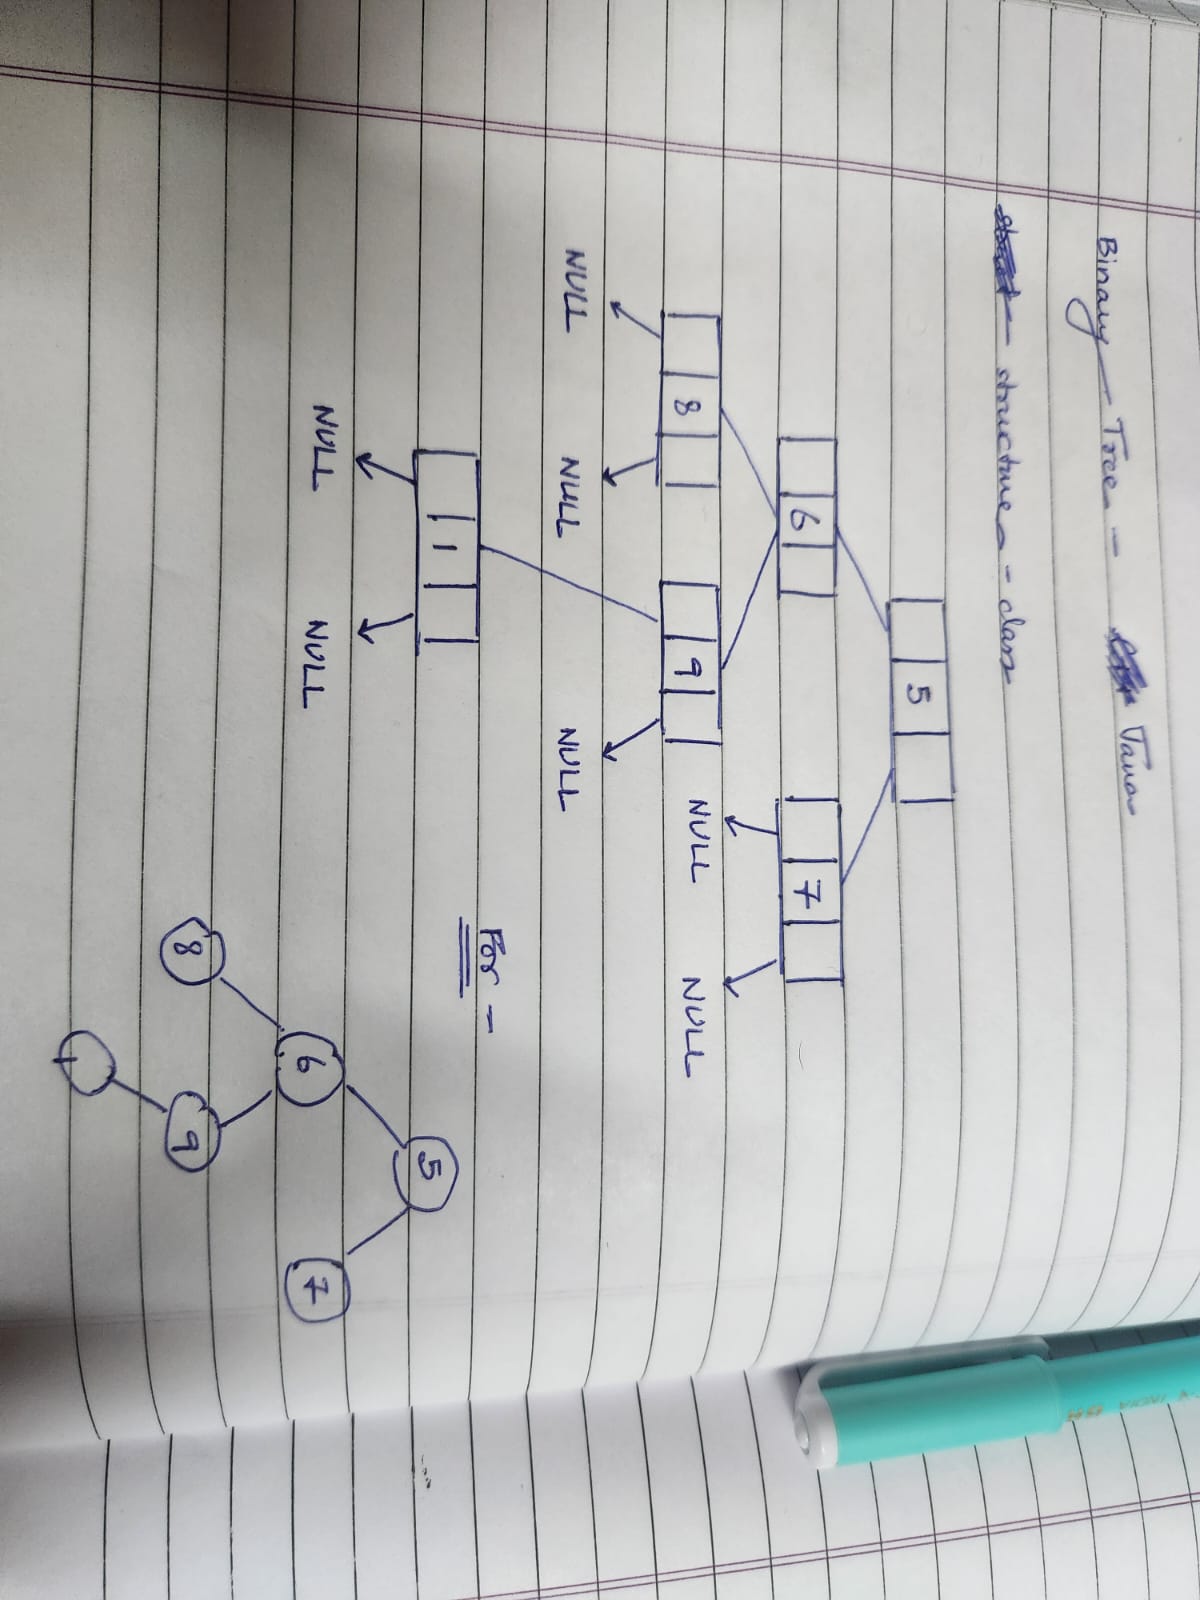 Binary Tree - Java
structure - class
5
6 7
8 9 NULL NULL
NULL NULL NULL
1
NULL NULL
For -
5
6 7
8 9
1